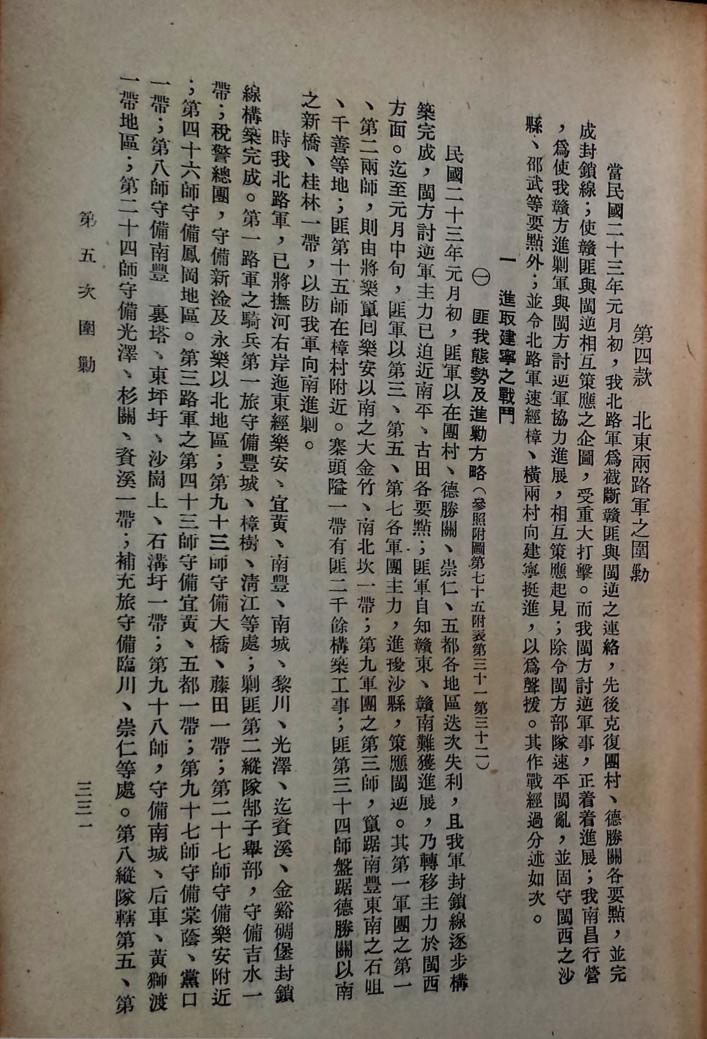 第四款　北東兩路軍之圍勦
當民國二十三年元月初，我北路軍爲截斷贛匪與閩逆之連絡，先後克復團村、德勝關各要點，並完
成封鎖線；使贛匪與閩逆相互策應之企圖，受重大打擊。而我閩方討逆軍事，正着着進展；我南昌行營
，爲使我贛方進剿軍與閩方討逆軍協力進展，相互策應起見；除令閩方部隊速平閩亂，並固守閩西之沙
縣、邵武等要點外；並令北路軍速經樟、橫兩村向建寧挺進，以爲聲援。其作戰經過分述如次。
一　進取建寧之戰鬥
㊀　匪我態勢及進勦方略（參照附圖第七十五附表第三十一第三十二）
民國二十三年元月初，匪軍以在團村、德勝關、崇仁、五都各地區迭次失利，且我軍封鎖線逐步構
築完成，閩方討逆軍主力已迫近南平、古田各要點；匪軍自知贛東、贛南難獲進展，乃轉移主力於閩西
方面。迄至元月中旬，匪軍以第三、第五、第七各軍團主力，進擾沙縣，策應閩逆。其第一軍團之第一
、第二兩師，則由將樂竄回樂安以南之大金竹、南北坎一帶；第九軍團之第三師，竄踞南豐東南之石咀
、千善等地；匪第十五師在樟村附近。寨頭隘一帶有匪二千餘構築工事；匪第三十四師盤踞德勝關以南
之新橋、桂林一帶，以防我軍向南進剿。
時我北路軍，已將撫河右岸迤東經樂安、宜黃、南豐、南城、黎川、光澤、迄資溪、金谿碉堡封鎖
線構築完成。第一路軍之騎兵第一旅守備豐城、樟樹、淸江等處；剿匪第二縱隊郜子舉部，守備吉水一
帶；稅警總團，守備新淦及永樂以北地區；第九十三師守備大橋、藤田一帶；第二十七師守備樂安附近
；第四十六師守備鳳岡地區。第三路軍之第四十三師守備宜黃、五都一帶；第九十七師守備棠蔭、黨口
一帶；第八師守備南豐　裏塔、東坪圩、沙崗上、石溝圩一帶；第九十八師，守備南城、后車、黃獅渡
一帶地區；第二十四師守備光澤、杉關、資溪一帶；補充旅守備臨川、崇仁等處。第八縱隊轄第五、第
第五次圍勦
三三一